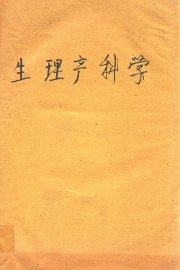 生理产科学